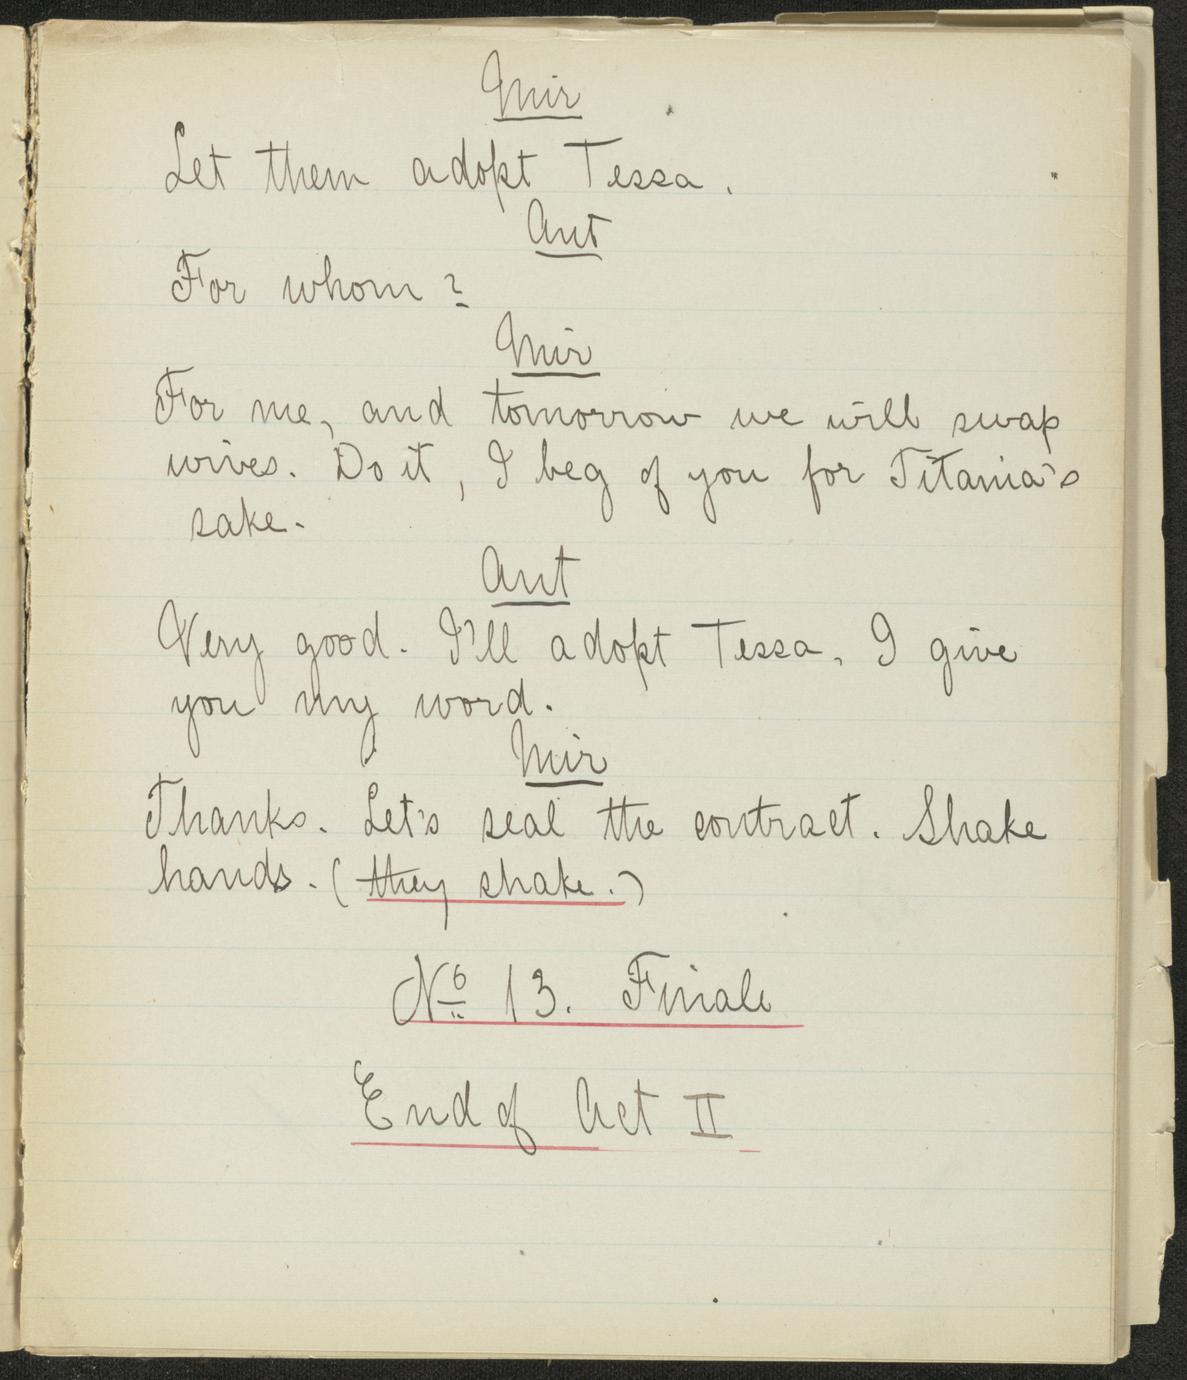 Mir
Let them adopt Tessa.
Ant
For whom?
Mir
For me, and tomorrow we will swap
wives. Do it, I beg of you for Titania's
sake.
Ant
Very good. I'll adopt Tessa, I give
you my word.
Mir
Thanks. Let's seal the contract. Shake
hands. (they shake.)
No 13. Finale
End of Act II